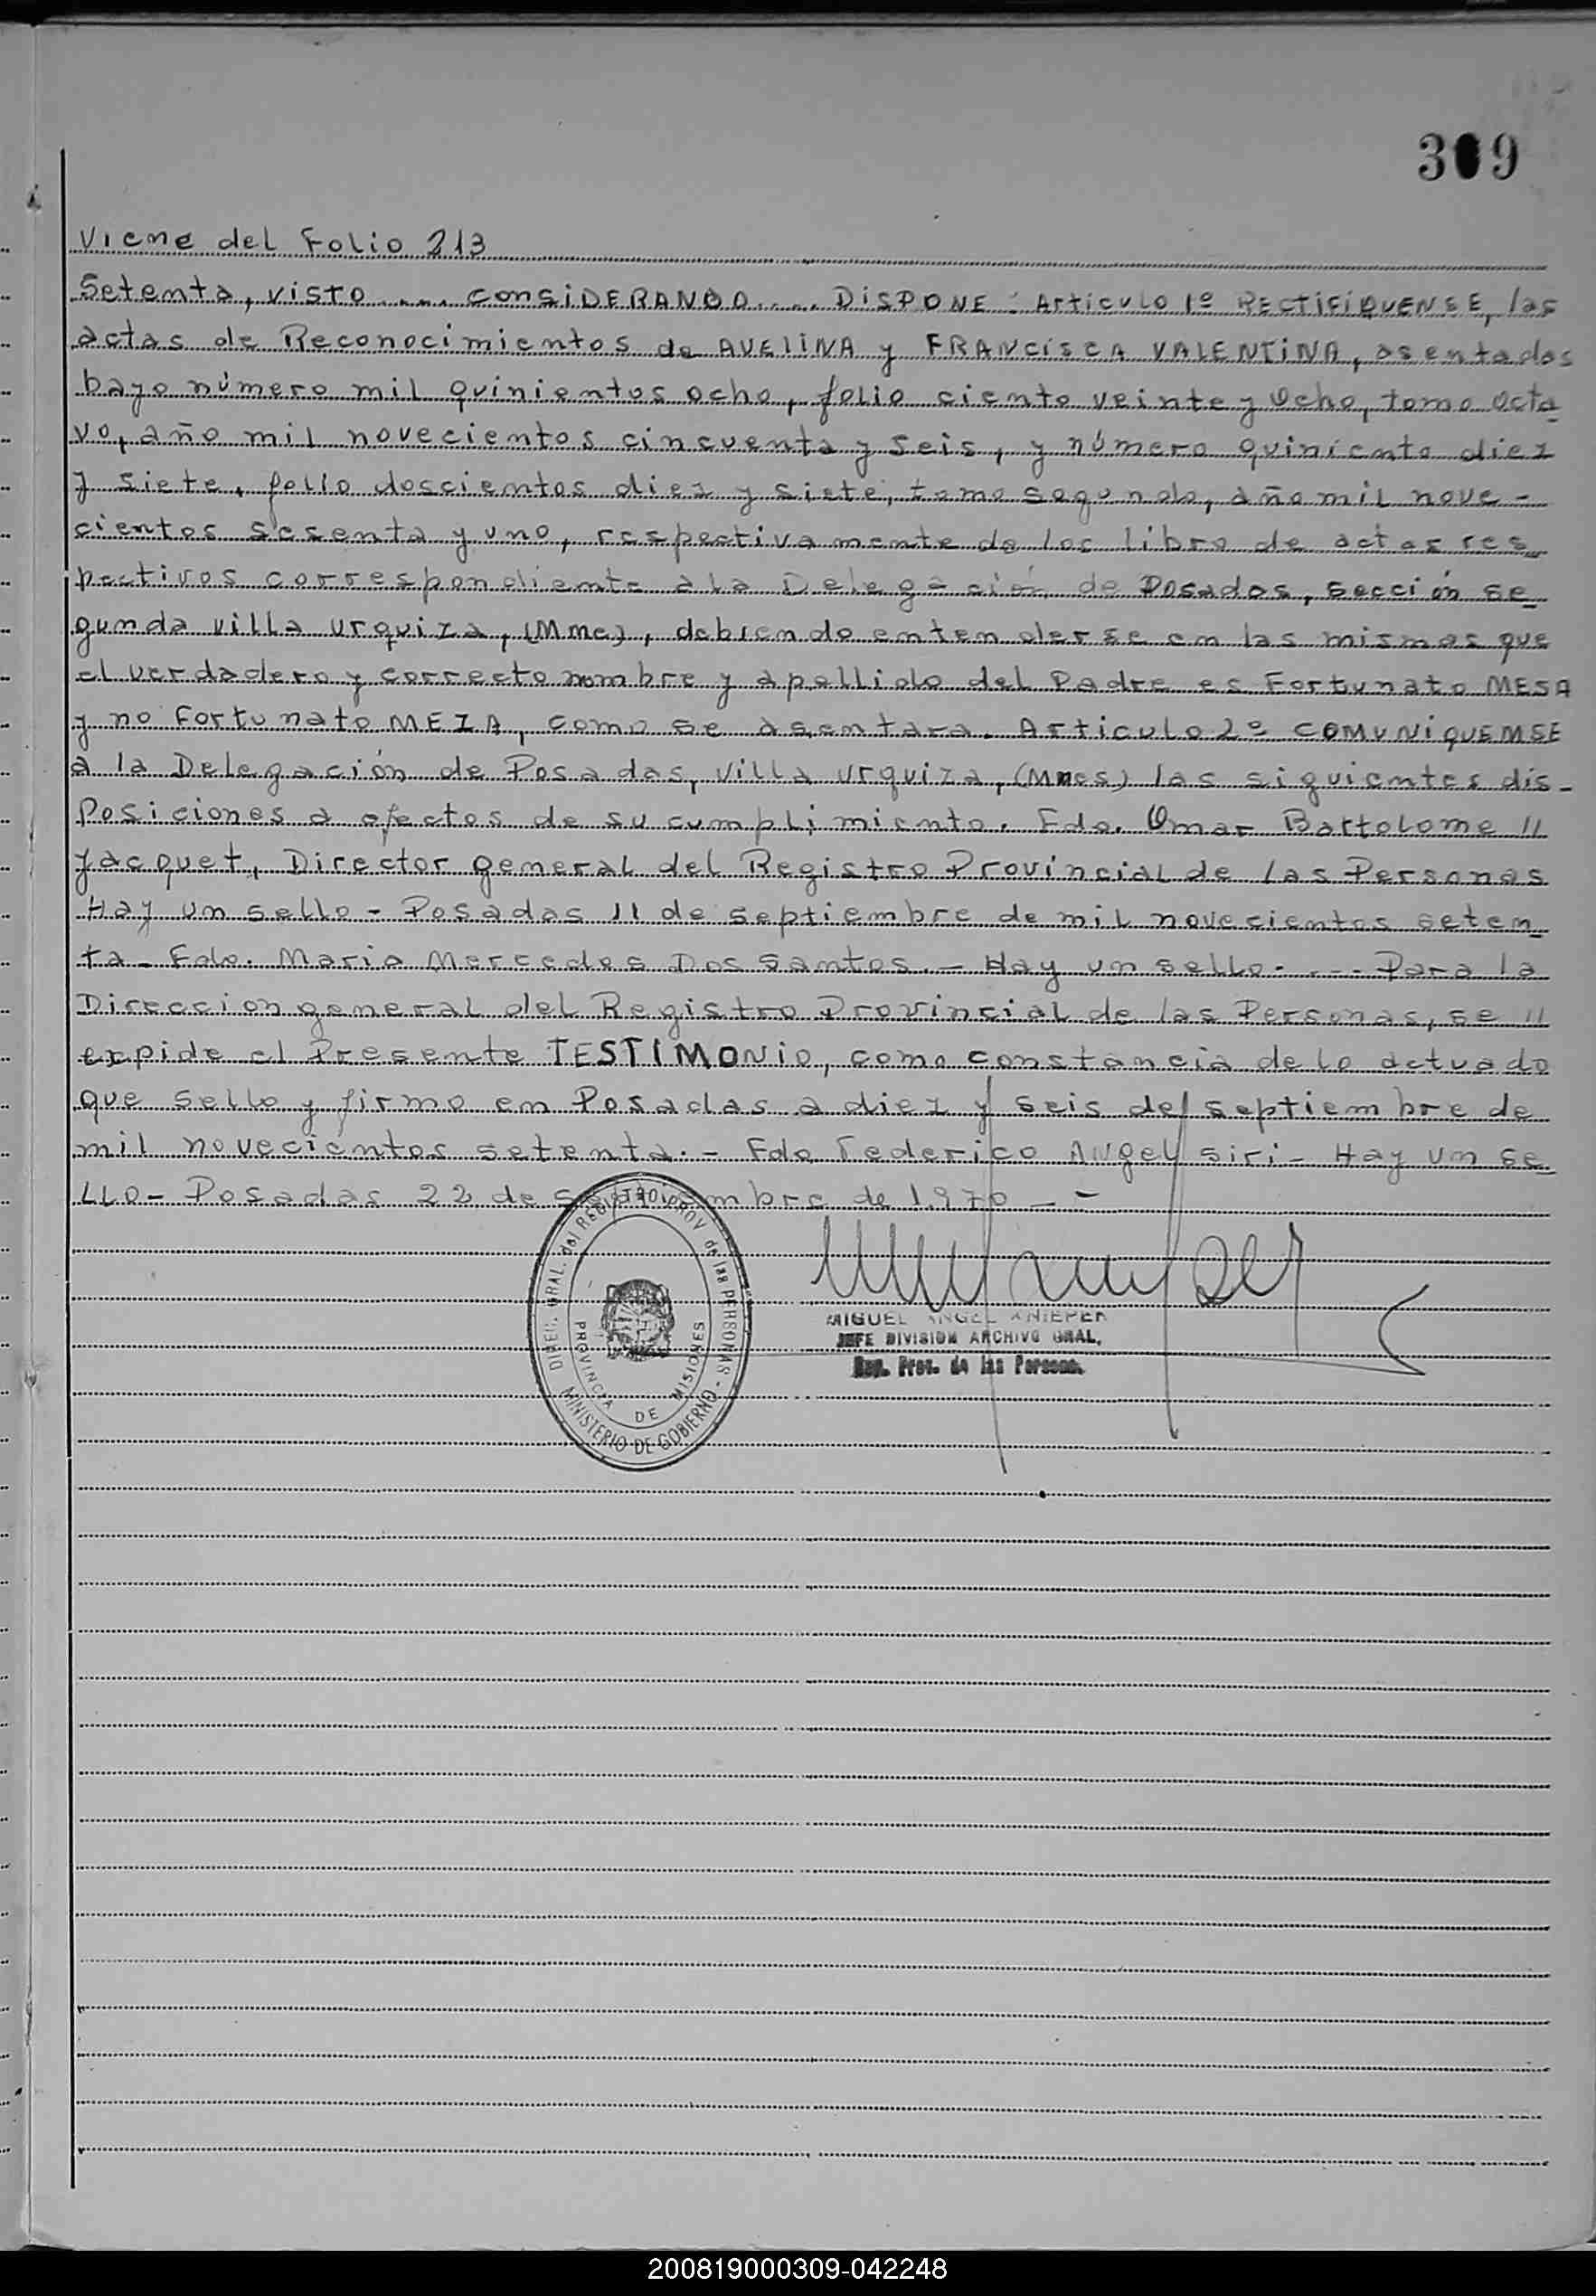 309
Viene del Folio 213
Setenta, visto .... consiDERANDO .... DISPONE: Articulo 1º RECTIFIQUENSE, las
actas de Reconocimientos de AVELINA y FRANCISCA VALENTINA, asentados
bajo número mil quinientos ocho, folio ciento veinte y ocho, tomo octa
vo, año mil novecientos cincuenta y seis, y número quiniento diez
y siete, folio doscientos diez y siete, tomo segundo, año mil nove-
cientos sesenta y uno, respectivamente de los libro de actas res
pectivos correspondiente a la Delegación de Posadas, sección se
gunda villa urquiza, (Mnes), debiendo entenderse en las mismas que
el verdadero y correcto nombre y apellido del Padre es Fortunato MESA
y no Fortunato MEZA, como se asentara. Articulo 2º COMUNIQUEMSE
a la Delegación de Posadas, villa urquiza, (Mnes) las siguientes dis-
posiciones a efectos de su cumplimiento. Fdo. Omar Bartolome //
Jacquet, Director general del Registro Provincial de las Personas
Hay un sello - Posadas 11 de septiembre de mil novecientos seten
ta - Fdo. Maria Mercedes Dos Santos. - Hay un sello. - - - Para la
Direccion general del Registro Provincial de las Personas, se //
expide el Presente TESTIMONIO, como constancia de lo actuado
que sello y firmo en Posadas a diez y seis del septiembre de
mil novecientos setenta. - Fdo Federico Angel Siri - Hay un se
llo - Posadas 22 de septiembre de 1970 - -
DIREC. GRAL. del REGISTRO PROV de las PERSONAS - MINISTERIO DE GOBIERNO
PROVINCIA DE MISIONES
MIGUEL ANGEL KNIEPER
JEFE DIVISION ARCHIVO GRAL.
Reg. Prov. de las Personas.
200819000309-042248